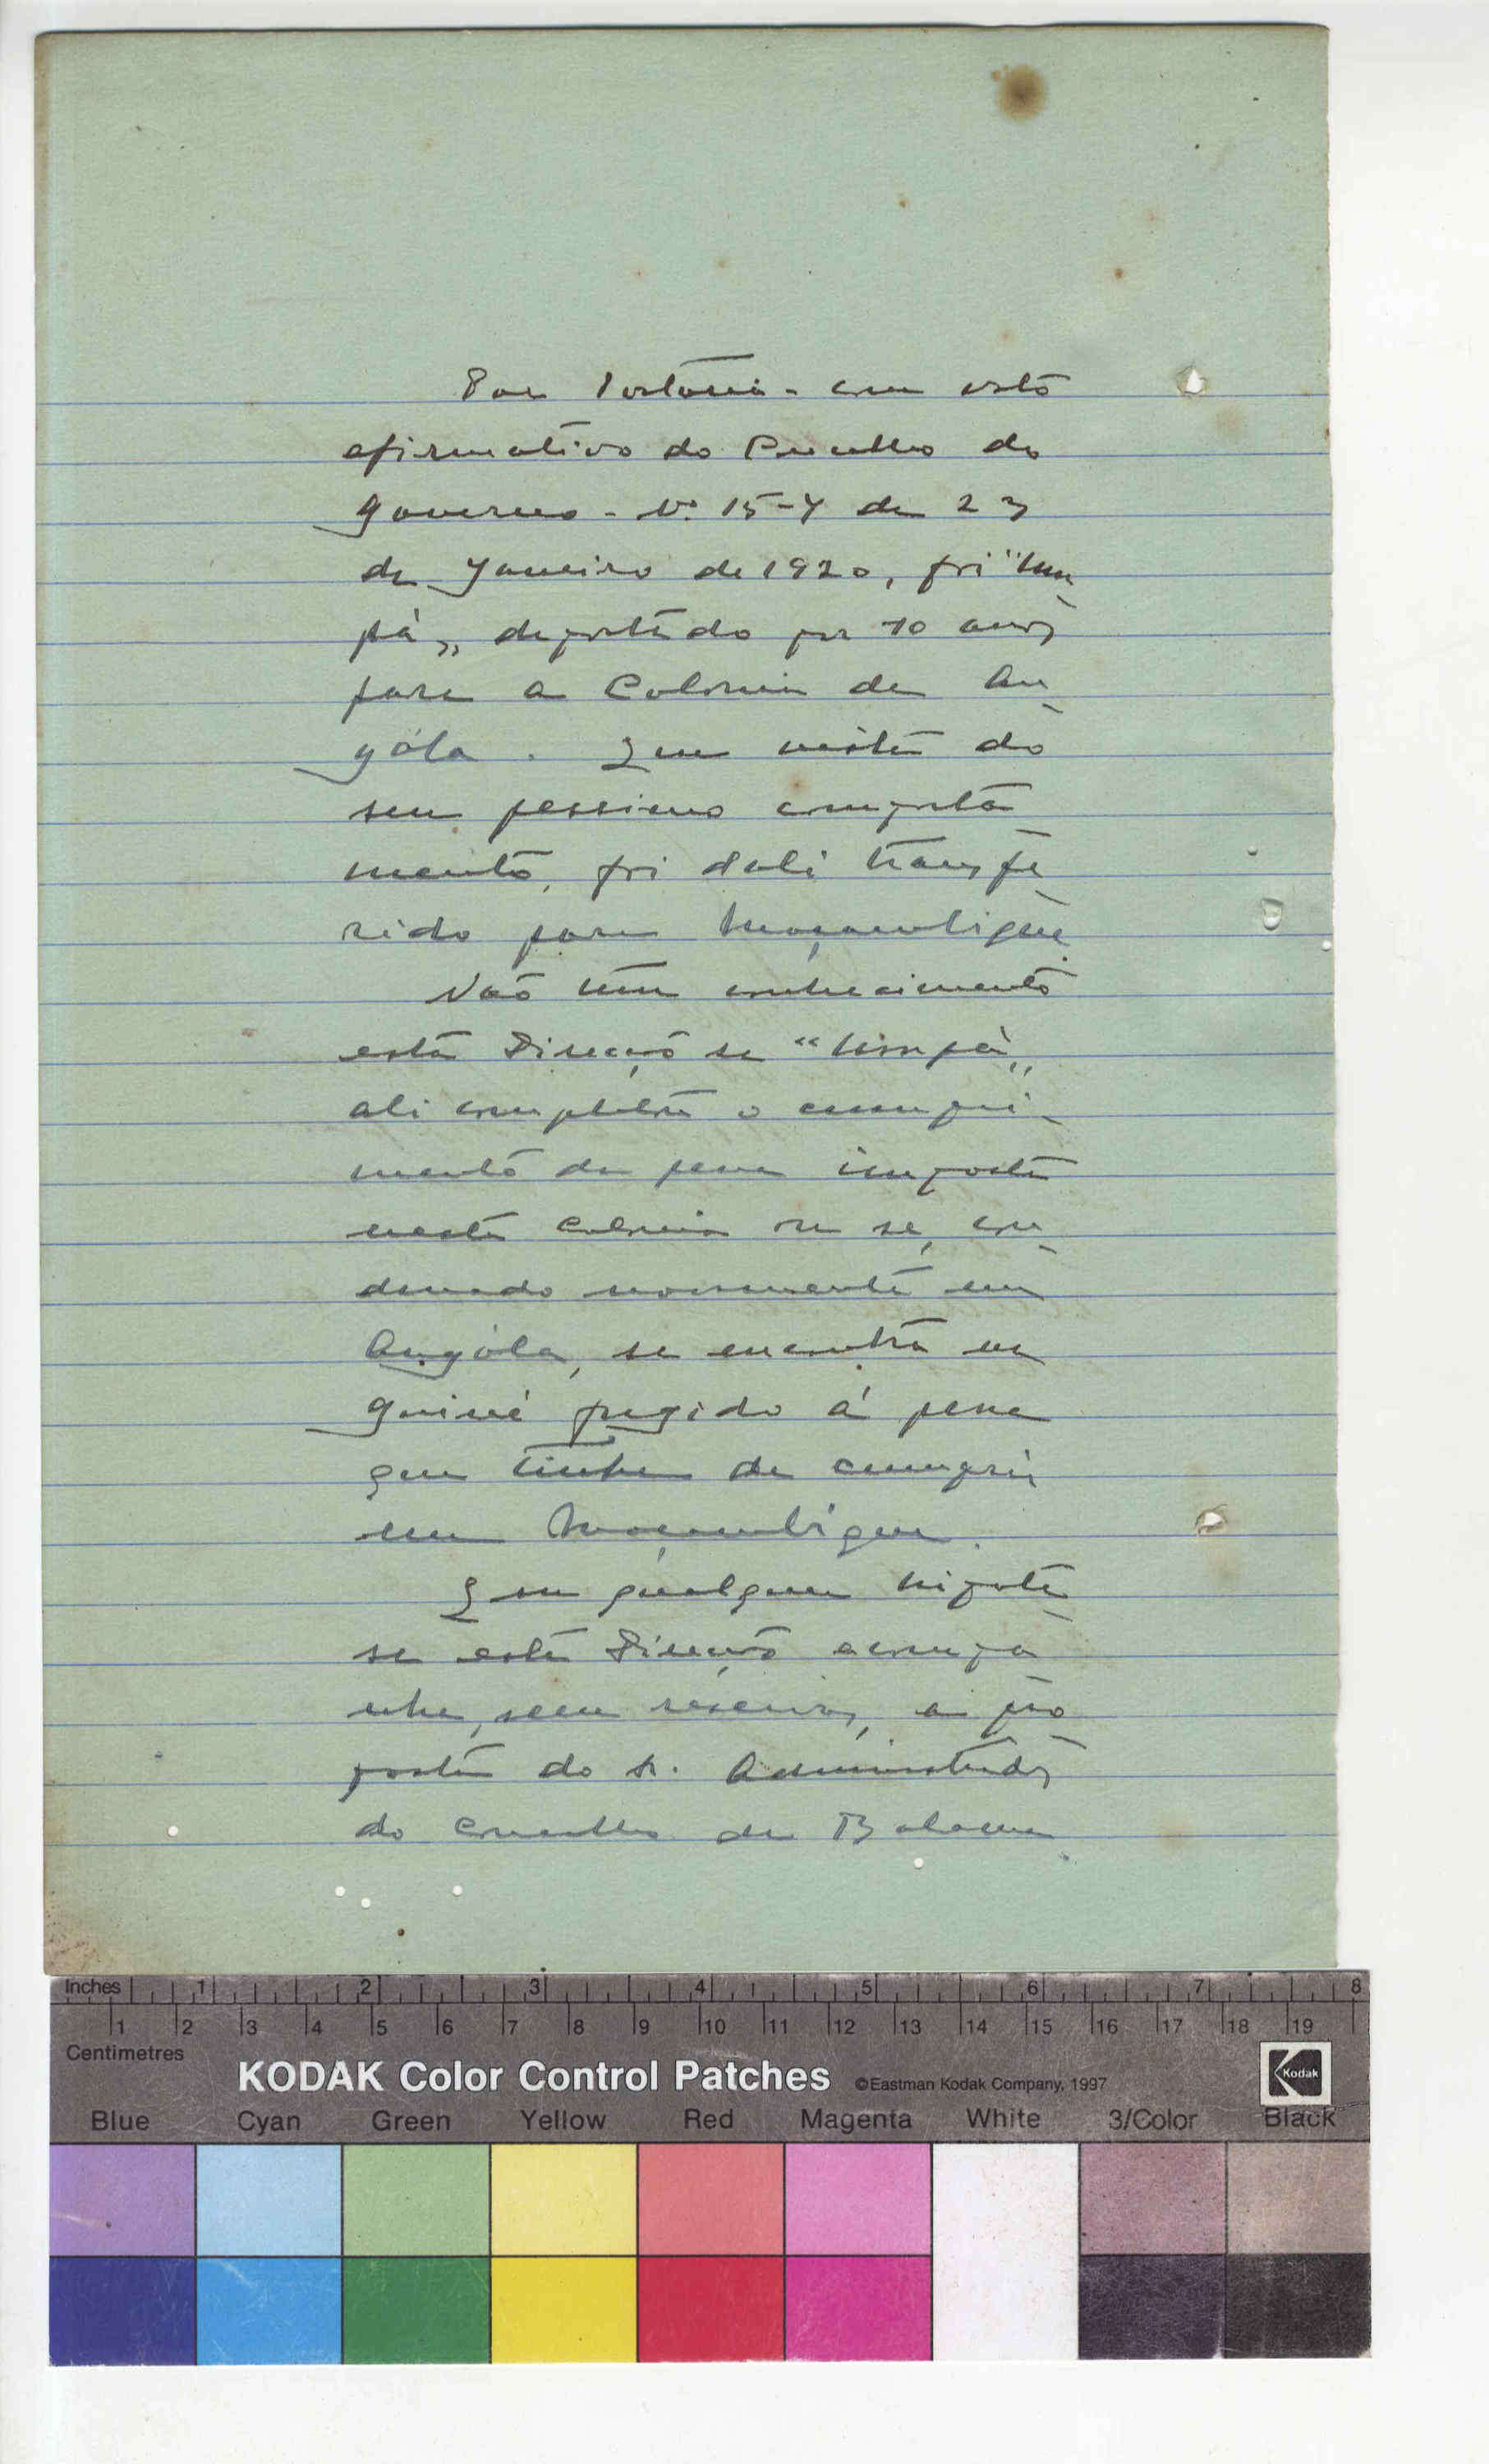 Por Portaria - com voto
afirmativo do Conselho do
Governo - Nº 15-Y de 23
de Janeiro de 1920, foi "Um
pá„ deportado por 10 anos
para a Colonia de An
góla. Em vista do
seu pessimo comporta
mento, foi dali transfe
rido para Moçambique.
Não tem conhecimento
esta Direcção se "Umpá„
ali completou o cumpri-
mento da pena imposta
nesta Colonia ou se, con
denado novamente em
Angóla, se encontra na
Guiné fugido á pena
que tinha de cumprir
em Moçambique.
Em qualquer hipote
se esta Direcção acompa
nha, sem reservas, a pro
posta do Sr. Administrador
do Concelho de Bolama
Inches 1 2 3 4 5 6 7 8
1 2 3 4 5 6 7 8 9 10 11 12 13 14 15 16 17 18 19
Centimetres
KODAK Color Control Patches ©Eastman Kodak Company, 1997 Kodak
Blue Cyan Green Yellow Red Magenta White 3/Color Black